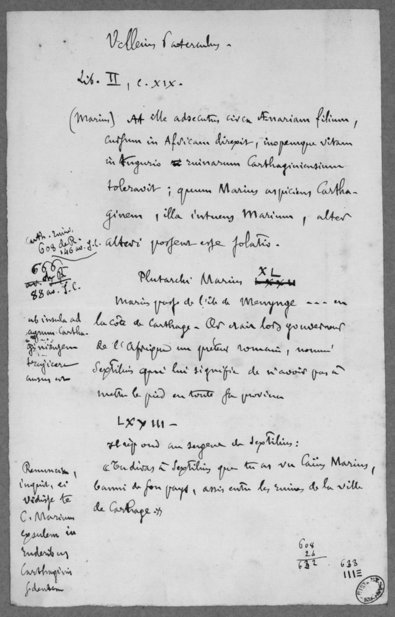 Velleius Paterculus.
Lib. II, c. XIX.
(Marius) At ille adsecutus circa Ænariam filium,
cursum in Africam direxit, inopemque vitam
in tugurio ruinarum Carthaginiensium
toleravit ; quum Marius aspiciens Cartha-
ginem, illa intuens Marium, alter
alteri possent esse solatio.
Carth. ruin.
608 de R.
146 av. J.C.
666
av. de R
88 av. J.C.
Plutarchi Marius XL
Marius passe de l'île de Menynge --- en
la côte de Carthage - Or était lors gouverneur
de l'Afrique un préteur romain, nommé
Sextilius qui lui signifie de n'avoir pas à
mettre le pied en toute sa province
ab insula ad
agrum Cartha-
giniensem
trajicere
ausus est
LXXIII -
Il répond au sergent de Sextilius :
« Tu diras à Sextilius que tu as vu Caïus Marius,
banni de son pays, assis entre les ruines de la ville
de Carthage »
Renuncia,
inquit,
vidisse te
C. Marium
exulem in
ruderibus
Carthaginis
sedentem
608
24
632
633
111